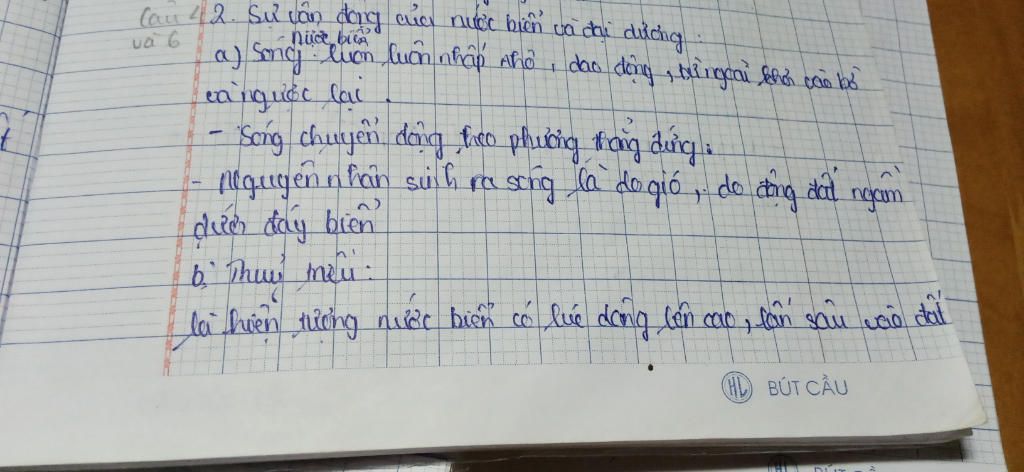 Câu 4 2. Sự vận động của nước biển và đại dương:
và 6 nước biển
a) Sóng: luôn luôn nhấp nhô, dao động, từ ngoài khơi vào bờ
và ngược lại.
- Sóng chuyển động theo phương thẳng đứng.
- Nguyên nhân sinh ra sóng là do gió, do động đất ngầm
dưới đáy biển
b. Thuỷ triều:
là hiện tượng nước biển có lúc dâng lên cao, lấn sâu vào đất
HL BÚT CẦU